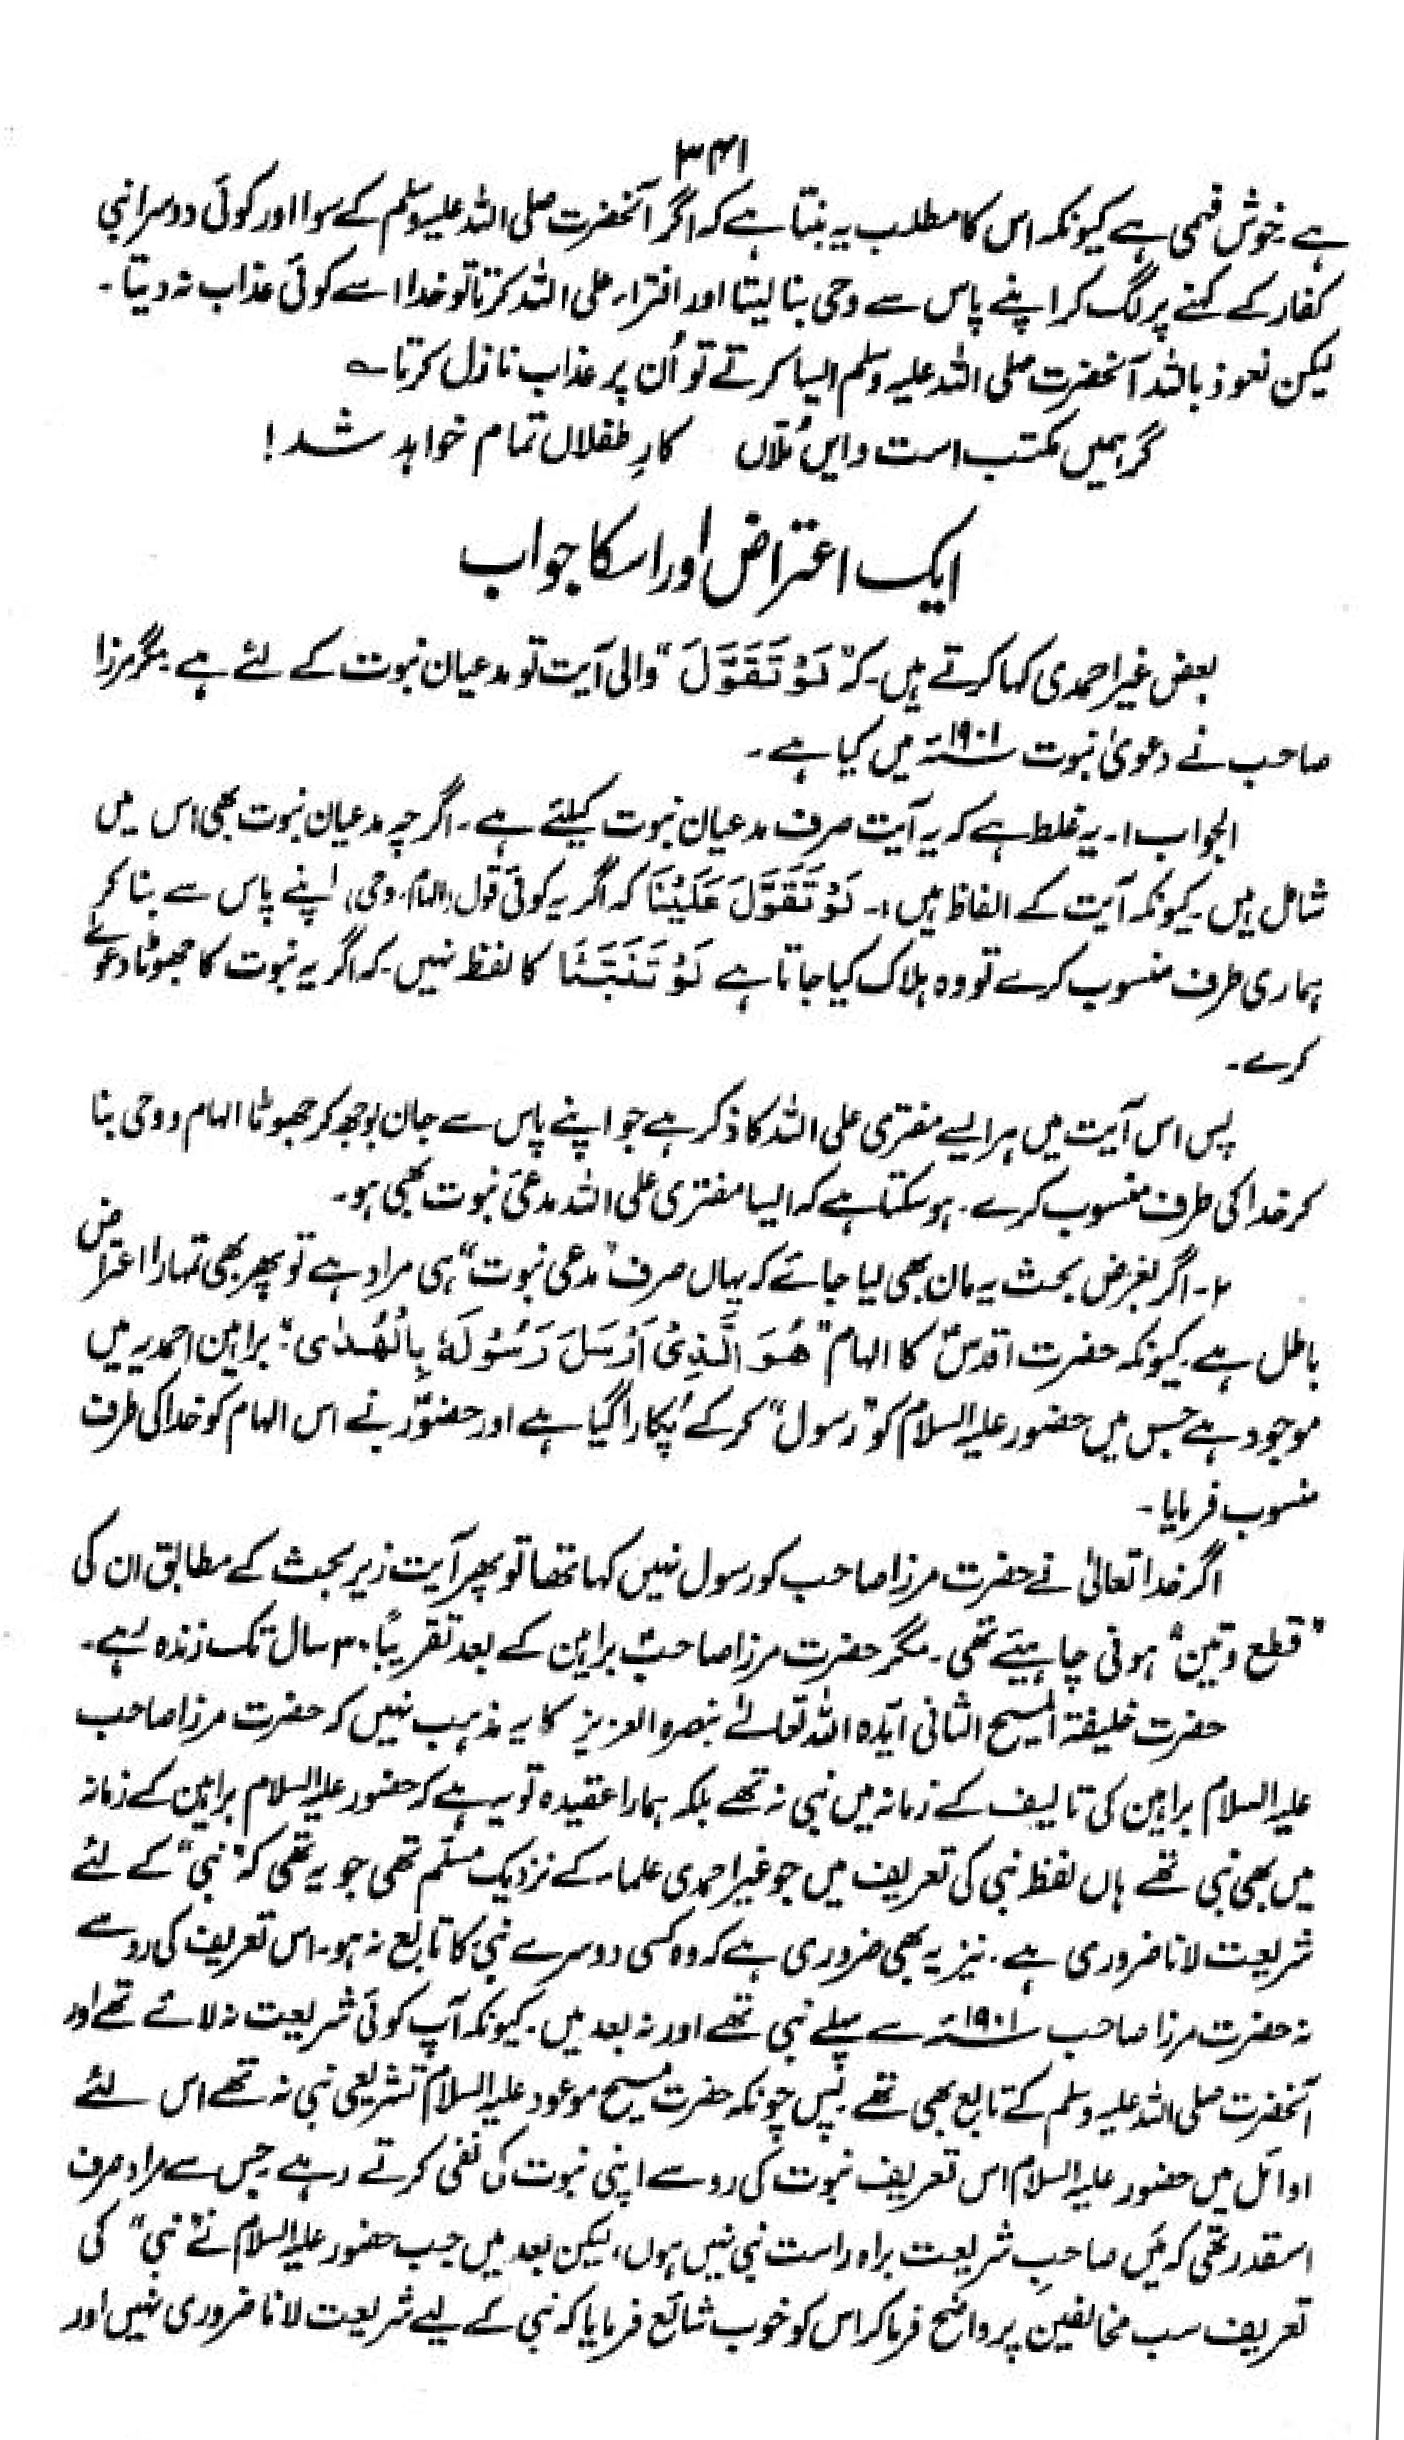 ۳۴۱
ہے۔ خوش فہمی ہے کیونکہ اس کا مطلب یہ بنتا ہے کہ اگر آنحضرت صلی اللہ علیہ وسلم کے سوا اور کوئی دوسرا نبی
کفار کے کہنے پر لگ کر اپنے پاس سے وحی بنا لیتا اور افتراء علی اللہ کرتا تو خدا اسے کوئی عذاب نہ دیتا ۔
لیکن نعوذ باللہ آنحضرت صلی اللہ علیہ وسلم ایسا کرتے تو اُن پر عذاب نازل کرتا ؎
گر ہمیں مکتب است و ایں مُلّاں کارِ طفلاں تمام خواہد شد !
ایک اعتراض اور اسکا جواب
بعض غیر احمدی کہا کرتے ہیں۔ کہ "لَوْ تَقَوَّلَ" والی آیت تو مدعیان نبوت کے لئے ہے۔ مگر مرزا
صاحب نے دعویٰ نبوت ۱۹۰۱ء میں کیا ہے ۔
الجواب ۱۔ یہ غلط ہے کہ یہ آیت صرف مدعیان نبوت کیلئے ہے۔ اگرچہ مدعیان نبوت بھی اس میں
شامل ہیں۔ کیونکہ آیت کے الفاظ ہیں :۔ لَوْ تَقَوَّلَ عَلَيْنَا کہ اگر یہ کوئی قول (الہام۔ وحی) اپنے پاس سے بنا کر
ہماری طرف منسوب کرے تو وہ ہلاک کیا جاتا ہے لَوْ تَنَبَّئَا کا لفظ نہیں۔ کہ اگر یہ نبوت کا جھوٹا دعوےٰ
کرے ۔
پس اس آیت میں ہر ایسے مفتری علی اللہ کا ذکر ہے جو اپنے پاس سے جان بوجھ کر جھوٹا الہام و وحی بنا
کر خدا کی طرف منسوب کرے ۔ ہو سکتا ہے کہ ایسا مفتری علی اللہ مدعیٔ نبوت بھی ہو۔
۲۔ اگر بغرض بحث یہ مان بھی لیا جائے کہ یہاں صرف "مدعی نبوت" ہی مراد ہے تو پھر بھی تمہارا اعتراض
باطل ہے۔ کیونکہ حضرت اقدسؑ کا الہام "هُوَ الَّذِىْ اَرْسَلَ رَسُوْلَهٗ بِالْهُدٰى" براہین احمدیہ میں
موجود ہے جس میں حضور علیہ السلام کو "رسول" کر کے پُکارا گیا ہے اور حضورؑ نے اس الہام کو خدا کی طرف
منسوب فرمایا ۔
اگر خدا تعالیٰ نے حضرت مرزا صاحب کو رسول نہیں کہا تھا تو پھر آیت زیر بحث کے مطابق ان کی
"قطع وتین" ہونی چاہیئے تھی۔ مگر حضرت مرزا صاحبؑ براہین کے بعد تقریباً ۳۰ سال تک زندہ رہے۔
حضرت خلیفۃ المسیح الثانی ایدہ اللہ تعالےٰ بنصرہ العزیز کا یہ مذہب نہیں کہ حضرت مرزا صاحب
علیہ السلام براہین کی تالیف کے زمانہ میں نبی نہ تھے بلکہ ہمارا عقیدہ تو یہ ہے کہ حضور علیہ السلام براہین کے زمانہ
میں بھی نبی تھے ہاں لفظ نبی کی تعریف میں جو غیر احمدی علماء کے نزدیک مسلّم تھی جو یہ تھی کہ "نبی" کے لئے
شریعت لانا ضروری ہے ۔ نیز یہ بھی ضروری ہے کہ وہ کسی دوسرے نبی کا تابع نہ ہو۔ اس تعریف کی رو سے
نہ حضرت مرزا صاحب ۱۹۰۱ء سے پہلے نبی تھے اور نہ بعد میں ۔ کیونکہ آپ کوئی شریعت نہ لائے تھے اور
آنحضرت صلی اللہ علیہ وسلم کے تابع بھی تھے۔ پس چونکہ حضرت مسیح موعود علیہ السلام تشریعی نبی نہ تھے اس لئے
اوائل میں حضور علیہ السلام اس تعریف نبوت کی رو سے اپنی نبوت کی نفی کرتے رہے جس سے مراد صرف
اسقدر تھی کہ مَیں صاحبِ شریعت براہ راست نبی نہیں ہوں، لیکن بعد میں جب حضور علیہ السلام نے "نبی" کی
تعریف سب مخالفین پر واضح فرما کر اس کو خوب شائع فرمایا کہ نبی کے لیے شریعت لانا ضروری نہیں اور